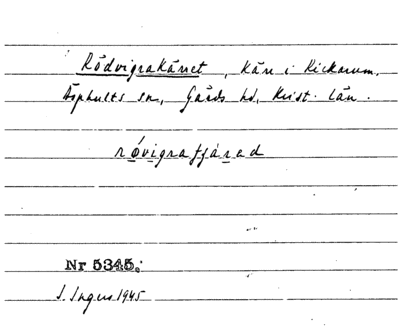 Rödvigrakärret, kärr i Kickarum.
Äsphults sn, Gärds hd, Krist. län.
rövigrafjáred
Nr 5345.
J. Ingers 1945